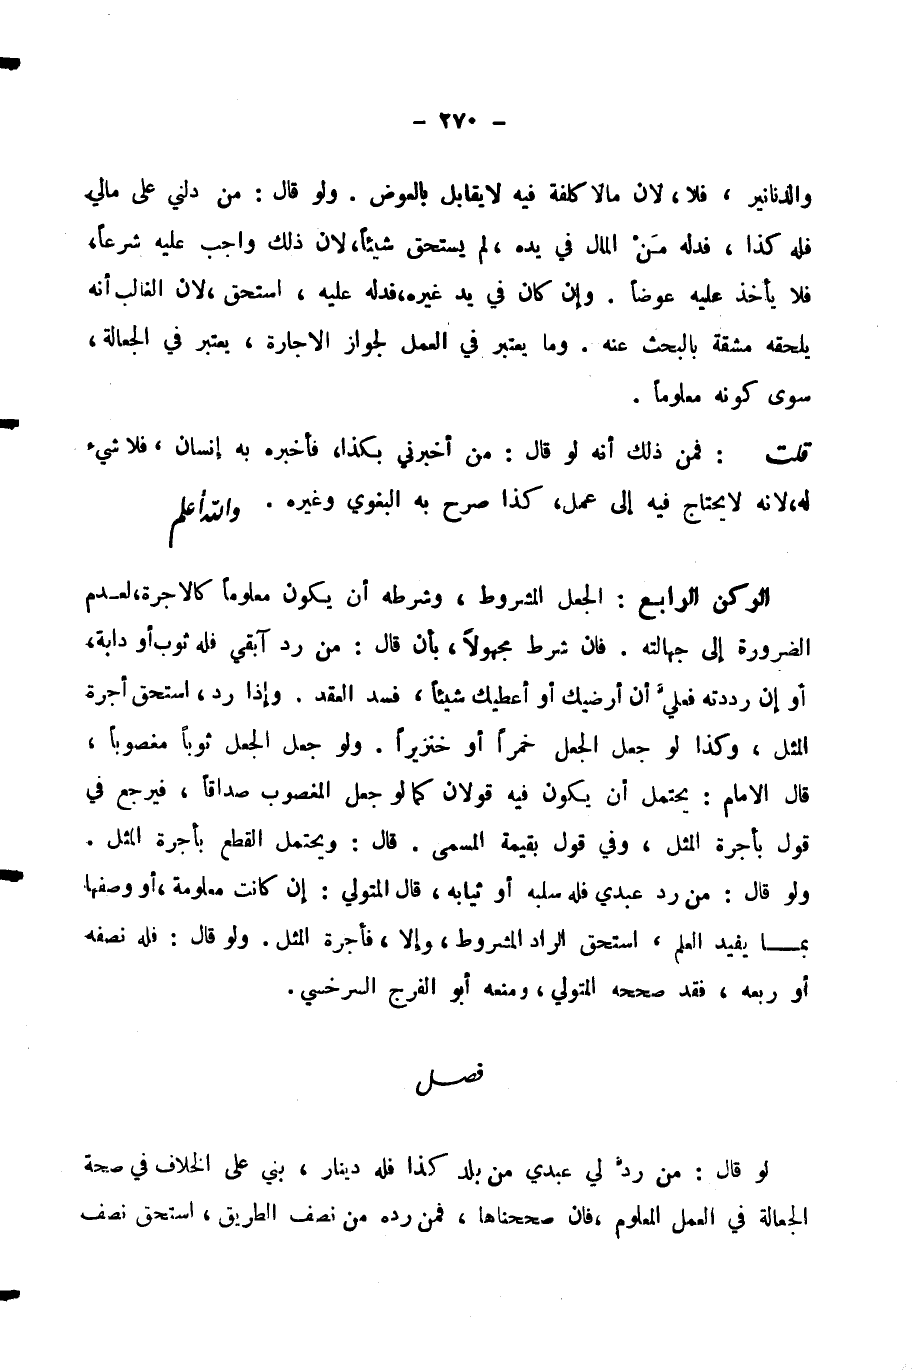 - ٢٧٠ -
والدنانير ، فلا ، لان مالا كلفة فيه لايقابل بالعوض . ولو قال : من دلني على مالي
فله كذا ، فدله مَنْ المال في يده ، لم يستحق شيئاً، لان ذلك واجب عليه شرعاً،
فلا يأخذ عليه عوضاً . وإن كان في يد غيره، فدله عليه ، استحق ، لان الغالب أنه
يلحقه مشقة بالبحث عنه . وما يعتبر في العمل لجواز الاجارة ، يعتبر في الجعالة ،
سوى كونه معلوماً .
قلت : فمن ذلك أنه لو قال : من أخبرني بكذا، فأخبره به إنسان ، فلا شيء
له، لانه لايحتاج فيه إلى عمل، كذا صرح به البغوي وغيره . والله أعلم
الركن الرابع : الجعل المشروط ، وشرطه أن يكون معلوماً كالاجرة، لعـدم
الضرورة إلى جهالته . فان شرط مجهولاً ، بأن قال : من رد آبقي فله ثوب أو دابة،
أو إن رددته فعليَّ أن أرضيك أو أعطيك شيئاً ، فسد العقد . وإذا رد ، استحق أجرة
المثل ، وكذا لو جعل الجعل خمراً أو خنزيراً . ولو جعل الجعل ثوباً مغصوباً ،
قال الامام : يحتمل أن يكون فيه قولان كما لو جعل المغصوب صداقاً ، فيرجع في
قول بأجرة المثل ، وفي قول بقيمة المسمى . قال : ويحتمل القطع بأجرة المثل .
ولو قال : من رد عبدي فله سلبه أو ثيابه ، قال المتولي : إن كانت معلومة ، أو وصفها
بمـــا يفيد العلم ، استحق الراد المشروط ، وإلا ، فأجرة المثل . ولو قال : فله نصفه
أو ربعه ، فقد صححه المتولي ، ومنعه أبو الفرج السرخسي .
فصـل
لو قال : من ردَّ لي عبدي من بلد كذا فله دينار ، بني على الخلاف في صحة
الجعالة في العمل المعلوم ، فان صححناها ، فمن رده من نصف الطريق ، استحق نصف